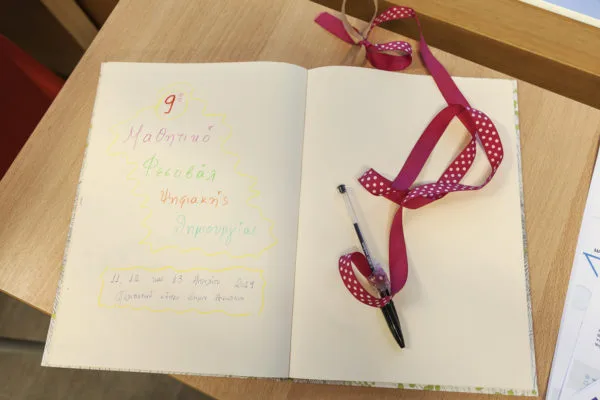 9ο
Μαθητικό
Φεστιβάλ
Ψηφιακής
Δημιουργίας
11, 12 και 13 Απριλίου 2019